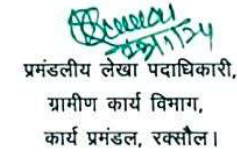 प्रमंडलीय लेखा पदाधिकारी,
ग्रामीण कार्य विभाग,
कार्य प्रमंडल, रक्सौल।